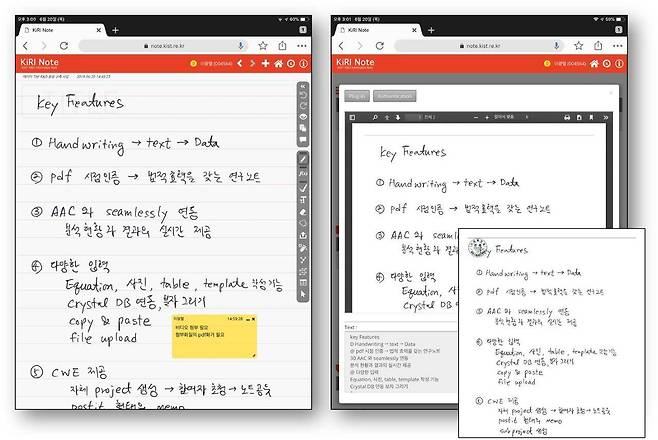 오후 3:05 6월 20일 (목)
60%
KiRI Note
note.kist.re.kr
KiRI Note
이광렬 (O04564)
2019-06-20 14:48:23
Key Features
① Handwriting → text → Data
② pdf 시점인증 → 법적효력을 갖는 연구노트
③ AAC 와 seamlessly 연동
분석현황과 결과의 실시간 제공
④ 다양한 입력
Equation, 사진, table, template 작성 기능
Crystal DB 연동, 분자 그리기
copy & paste
file upload
이광렬 14:59:28
비디오 첨부 필요
첨부파일의 pdf화가 필요
⑤ CWE 제공
자체 project 생성 → 참여자 초청 → 노트공유
postit 형태의 memo
오후 3:01 6월 20일 (목)
59%
KiRI Note
note.kist.re.kr
KiRI Note
이광렬 (O04564)
Plug-in
Authentication
자동으로 맞춤
Key Features
① Handwriting → text → Data
② pdf 시점인증 → 법적효력을 갖는 연구노트
③ AAC 와 seamlessly 연동
분석현황과 결과의 실시간 제공
④ 다양한 입력
Equation, 사진,
Crystal DB 연동,
copy & paste
file upload
Text :
key Features
D Handwriting → text → Data
@ pdf 시점 인증 → 법적 효력을 갖는 연구노트
3D AAC 와 seamlessly 연동
분석 현황과 결과의 실시간 제공
@ 다양한 입력
Equation, 사진, table, template 작성 기능
Crystal DB 연동 분자 그리기
Key Features
① Handwriting → text → Data
② pdf 시점인증 → 법적효력을 갖는 연구노트
③ AAC 와 seamlessly 연동
분석현황과 결과의 실시간 제공
④ 다양한 입력
Equation, 사진, table, template 작성기능
Crystal DB 연동, 분자 그리기
copy & paste
file upload
⑤ CWE 제공
자체 project 생성 → 참여자 초청 → 노트공유
postit 형태의 memo
sub project 생성